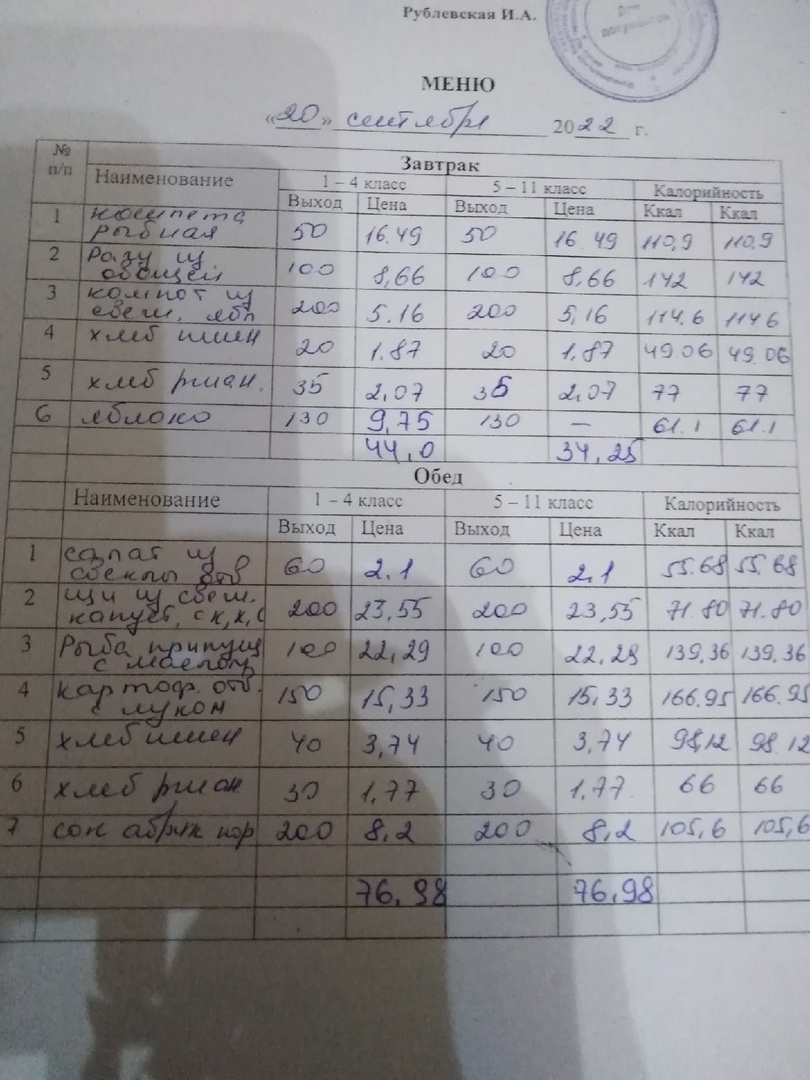 Рублевская И.А.
Для документов
МЕНЮ
«20» сентября 2022 г.
№ п/п Наименование Завтрак
1 – 4 класс 5 – 11 класс Калорийность
Выход Цена Выход Цена Ккал Ккал
1 котлета рыбная 50 16.49 50 16.49 110,9 110,9
2 Рагу из овощей 100 8,66 100 8,66 142 142
3 компот из свеж. ябл 200 5.16 200 5,16 114.6 114 6
4 хлеб пшен 20 1.87 20 1,87 49.06 49.06
5 хлеб ржан. 35 2,07 35 2,07 77 77
6 яблоко 130 9,75 130 – 61.1 61.1
44,0 34,25
Обед
Наименование 1 – 4 класс 5 – 11 класс Калорийность
Выход Цена Выход Цена Ккал Ккал
1 салат из свеклы отв 60 2.1 60 2,1 55.68 55.68
2 щи из свеж. капуст, с к, к, с 200 23,55 200 23,55 71.80 71.80
3 Рыба припущ с маслом 100 22,29 100 22.29 139,36 139,36
4 картоф. отв. с луком 150 15,33 150 15,33 166.95 166.95
5 хлеб пшен 40 3,74 40 3,74 98,12 98.12
6 хлеб ржан 30 1,77 30 1,77. 66 66
7 сок абрик 200 8,2 200 8,2 105,6 105,6
76,98 76,98